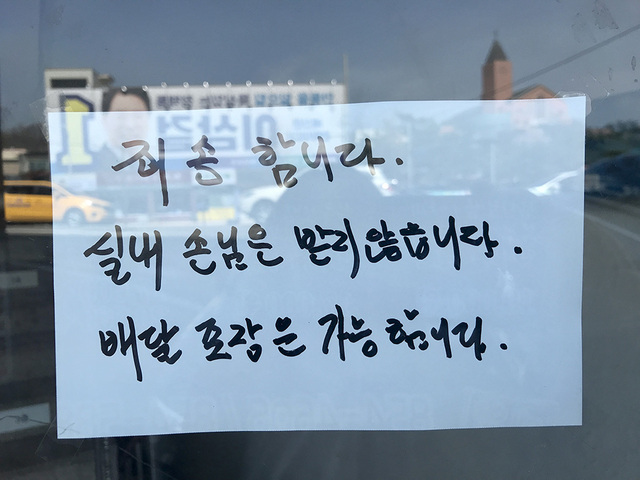 죄송합니다.
실내 손님은 받지않습니다.
배달 포장은 가능합니다.